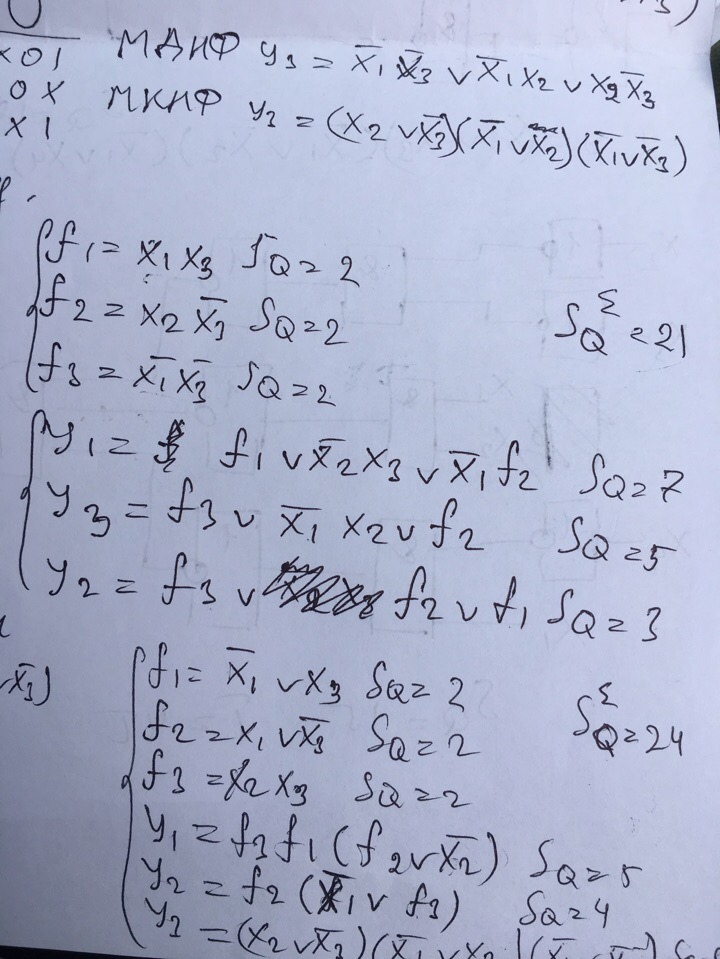 x01 МДНФ y₃ = x̄₁ x̄₃ ∨ x̄₁ x₂ ∨ x₂ x̄₃
0x МКНФ y₃ = (x₂ ∨ x̄₃)(x̄₁ ∨ x₂)(x̄₁ ∨ x̄₃)
x1
f₁ = x₁ x₃ S_Q = 2
f₂ = x₂ x̄₃ S_Q = 2
S_Q^Σ = 21
f₃ = x̄₁ x̄₃ S_Q = 2
y₁ = f₁ ∨ x̄₂ x₃ ∨ x̄₁ f₂ S_Q = 7
y₃ = f₃ ∨ x̄₁ x₂ ∨ f₂ S_Q = 5
y₂ = f₃ ∨ f₂ ∨ f₁ S_Q = 3
∨ x̄₃) f₁ = x̄₁ ∨ x₃ S_Q = 2
f₂ = x₁ ∨ x̄₃ S_Q = 2
S_Q^Σ = 24
f₃ = x₂ x₃ S_Q = 2
y₁ = f₃ f₁ (f₂ ∨ x̄₂) S_Q = 5
y₂ = f₂ (x̄₁ ∨ f₃) S_Q = 4
y₃ = (x₂ ∨ x̄₃)(x̄₁ ∨ x₂)